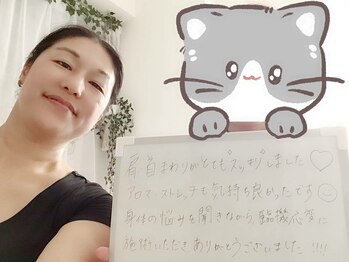 肩首まわりがとても"スッキリ"しました♡
アロマ・ストレッチも気持ち良かったです☺
身体の悩みを聞きながら、臨機応変に
施術いただきありがとうございました!!!!